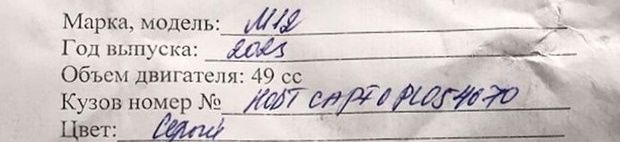 Марка, модель: M12
Год выпуска: 2023
Объем двигателя: 49 cc
Кузов номер №
Цвет: Серый